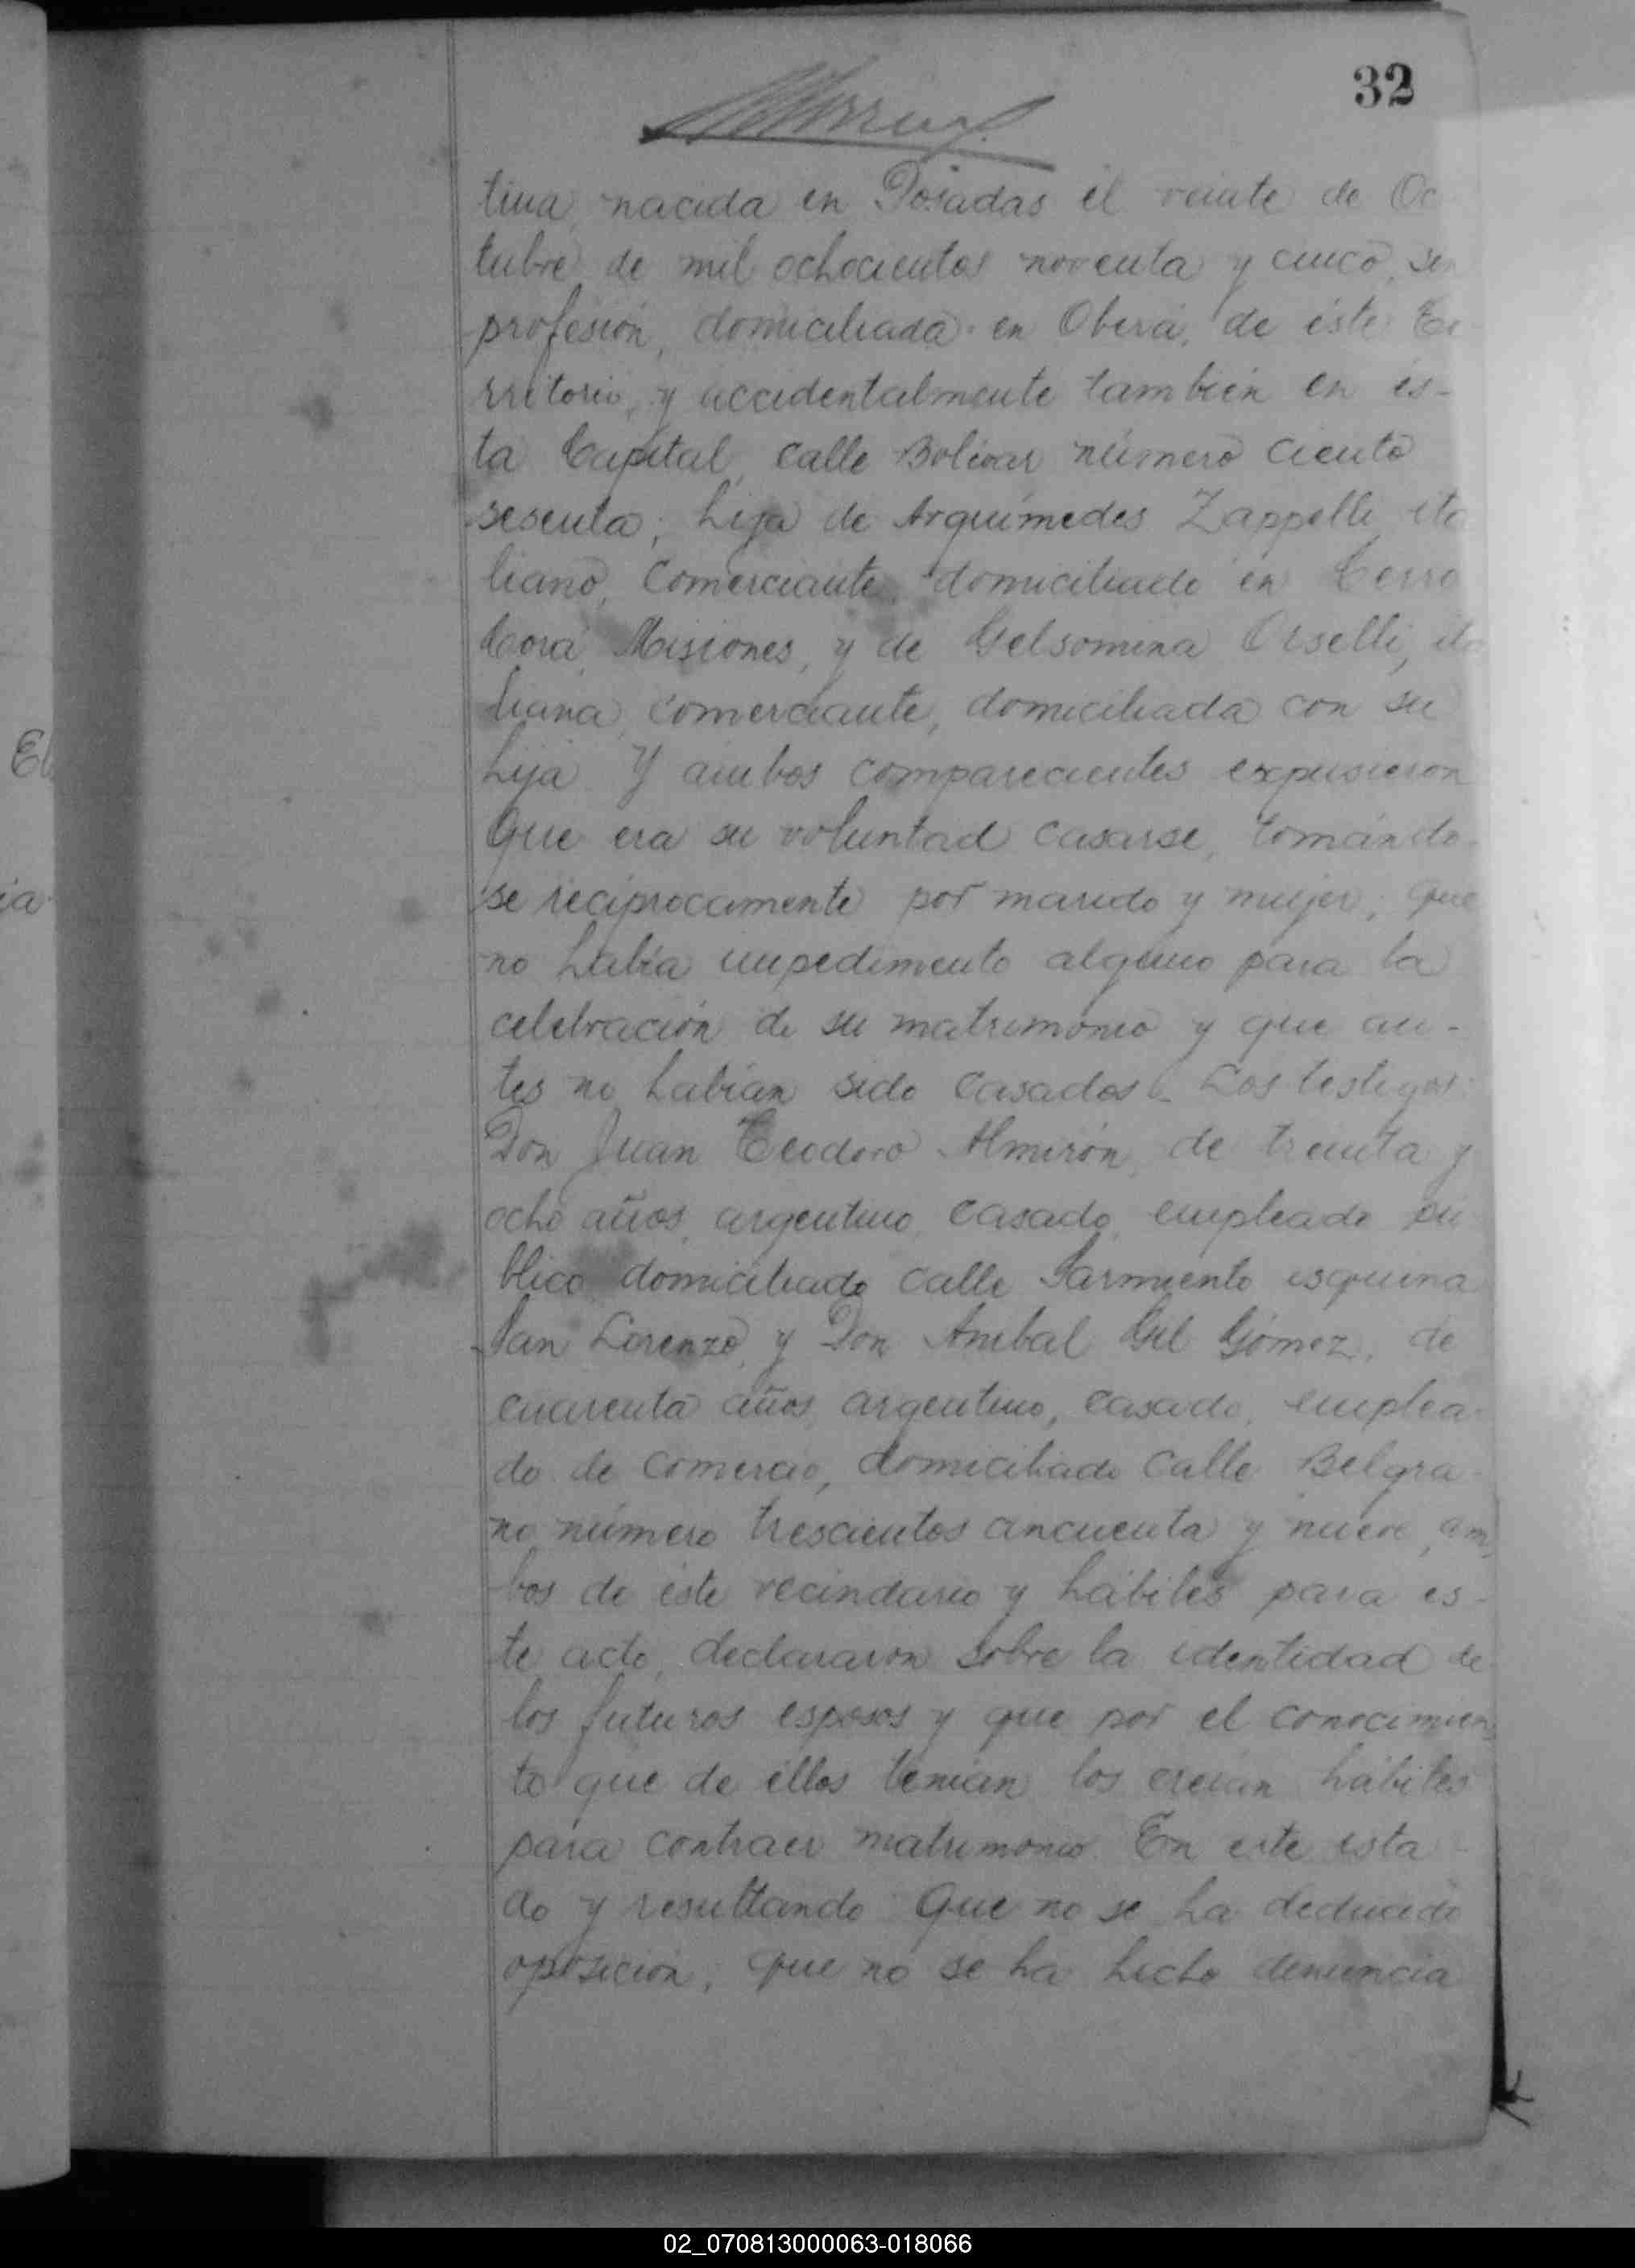 32
tina, nacida en Posadas el veinte de Oc
tubre de mil ochocientos noventa y cinco, sin
profesión, domiciliada en Oberá, de éste Te-
rritorio, y accidentalmente también en és-
ta Capital, calle Bolívar número ciento
sesenta; hija de Arquímedes Zappelli, ita
liano, Comerciante, domiciliado en Cerro
Corá, Misiones, y de Gelsomina Orselli, ita
liana, comerciante, domiciliada con su
hija. Y ambos comparecientes expusieron
que era su voluntad casarse, tomándo-
se recíprocamente por marido y mujer; que
no había impedimento alguno para la
celebración de su matrimonio y que an-
tes no habían sido casados. Los testigos:
Don Juan Teodoro Almirón, de treinta y
ocho años, argentino, casado, empleado pú
blico domiciliado calle Sarmiento esquina
San Lorenzo, y Don Anibal Gil Gómez, de
cuarenta años, argentino, casado, emplea-
do de comercio, domiciliado calle Belgra-
no número trescientos cincuenta y nueve, am
bos de éste vecindario y hábiles para es-
te acto, declararon sobre la identidad de
los futuros esposos y que por el conocimien
to que de éllos tenían los creían hábiles
para contraer matrimonio. En este esta-
do y resultando que no se ha deducido
oposición, que no se ha hecho denuncia
El
ia
02_070813000063-018066